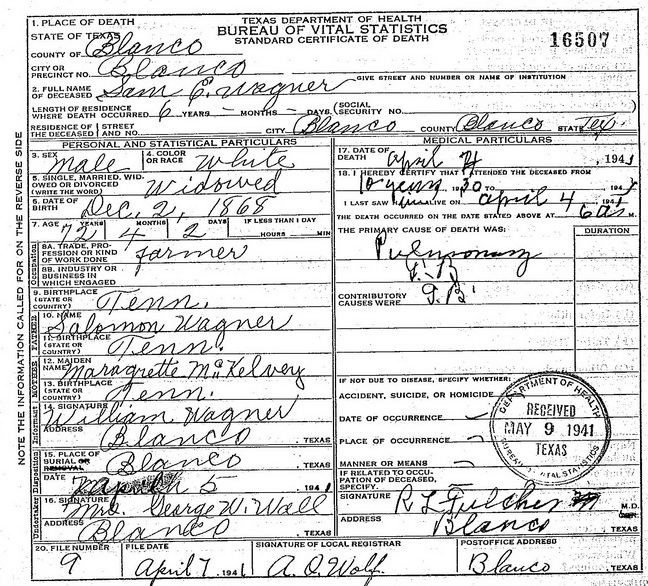 TEXAS DEPARTMENT OF HEALTH
BUREAU OF VITAL STATISTICS
STANDARD CERTIFICATE OF DEATH
16507
1. PLACE OF DEATH
STATE OF TEXAS
COUNTY OF Blanco
CITY OR PRECINCT NO. Blanco
GIVE STREET AND NUMBER OR NAME OF INSTITUTION
2. FULL NAME OF DECEASED Sam E. Wagner
LENGTH OF RESIDENCE WHERE DEATH OCCURRED 6 YEARS - MONTHS - DAYS (SOCIAL SECURITY NO.
RESIDENCE OF THE DECEASED STREET AND NO. CITY Blanco COUNTY Blanco STATE Tex.
NOTE THE INFORMATION CALLED FOR ON THE REVERSE SIDE
PERSONAL AND STATISTICAL PARTICULARS
3. SEX Male 4. COLOR OR RACE White
5. SINGLE, MARRIED, WIDOWED OR DIVORCED (WRITE THE WORD) Widowed
6. DATE OF BIRTH Dec. 2, 1868
7. AGE 72 YEARS 4 MONTHS 2 DAYS IF LESS THAN 1 DAY HOURS MIN
Occupation
8A. TRADE, PROFESSION OR KIND OF WORK DONE farmer
8B. INDUSTRY OR BUSINESS IN WHICH ENGAGED
9. BIRTHPLACE (STATE OR COUNTRY) Tenn.
FATHER
10. NAME Salomon Wagner
11. BIRTHPLACE (STATE OR COUNTRY) Tenn.
MOTHER
12. MAIDEN NAME Maragrette McKelvey
13. BIRTHPLACE (STATE OR COUNTRY) Tenn.
Informant
14. SIGNATURE William Wagner
ADDRESS Blanco, TEXAS
Undertaker Disposition
15. PLACE OF BURIAL OR REMOVAL Blanco, TEXAS
DATE 5 1941
16. SIGNATURE Mrs. George W. Wall
ADDRESS Blanco, TEXAS
MEDICAL PARTICULARS
17. DATE OF DEATH April 4, 1941
18. I HEREBY CERTIFY THAT I ATTENDED THE DECEASED FROM
10 years 1930 TO 194
I LAST SAW ALIVE ON April 4 194
THE DEATH OCCURRED ON THE DATE STATED ABOVE AT 6 M.
THE PRIMARY CAUSE OF DEATH WAS: DURATION
Pulmonary
CONTRIBUTORY CAUSES WERE T. B.
IF NOT DUE TO DISEASE, SPECIFY WHETHER:
ACCIDENT, SUICIDE, OR HOMICIDE
DATE OF OCCURRENCE
PLACE OF OCCURRENCE
MANNER OR MEANS
IF RELATED TO OCCUPATION OF DECEASED, SPECIFY.
DEPARTMENT OF HEALTH
RECEIVED
MAY 9 1941
TEXAS
BUREAU VITAL STATISTICS
SIGNATURE R L Fulcher M.D.
ADDRESS Blanco TEXAS
20. FILE NUMBER 9
FILE DATE April 7 1941
SIGNATURE OF LOCAL REGISTRAR A. O. Wolf.
POSTOFFICE ADDRESS Blanco, TEXAS